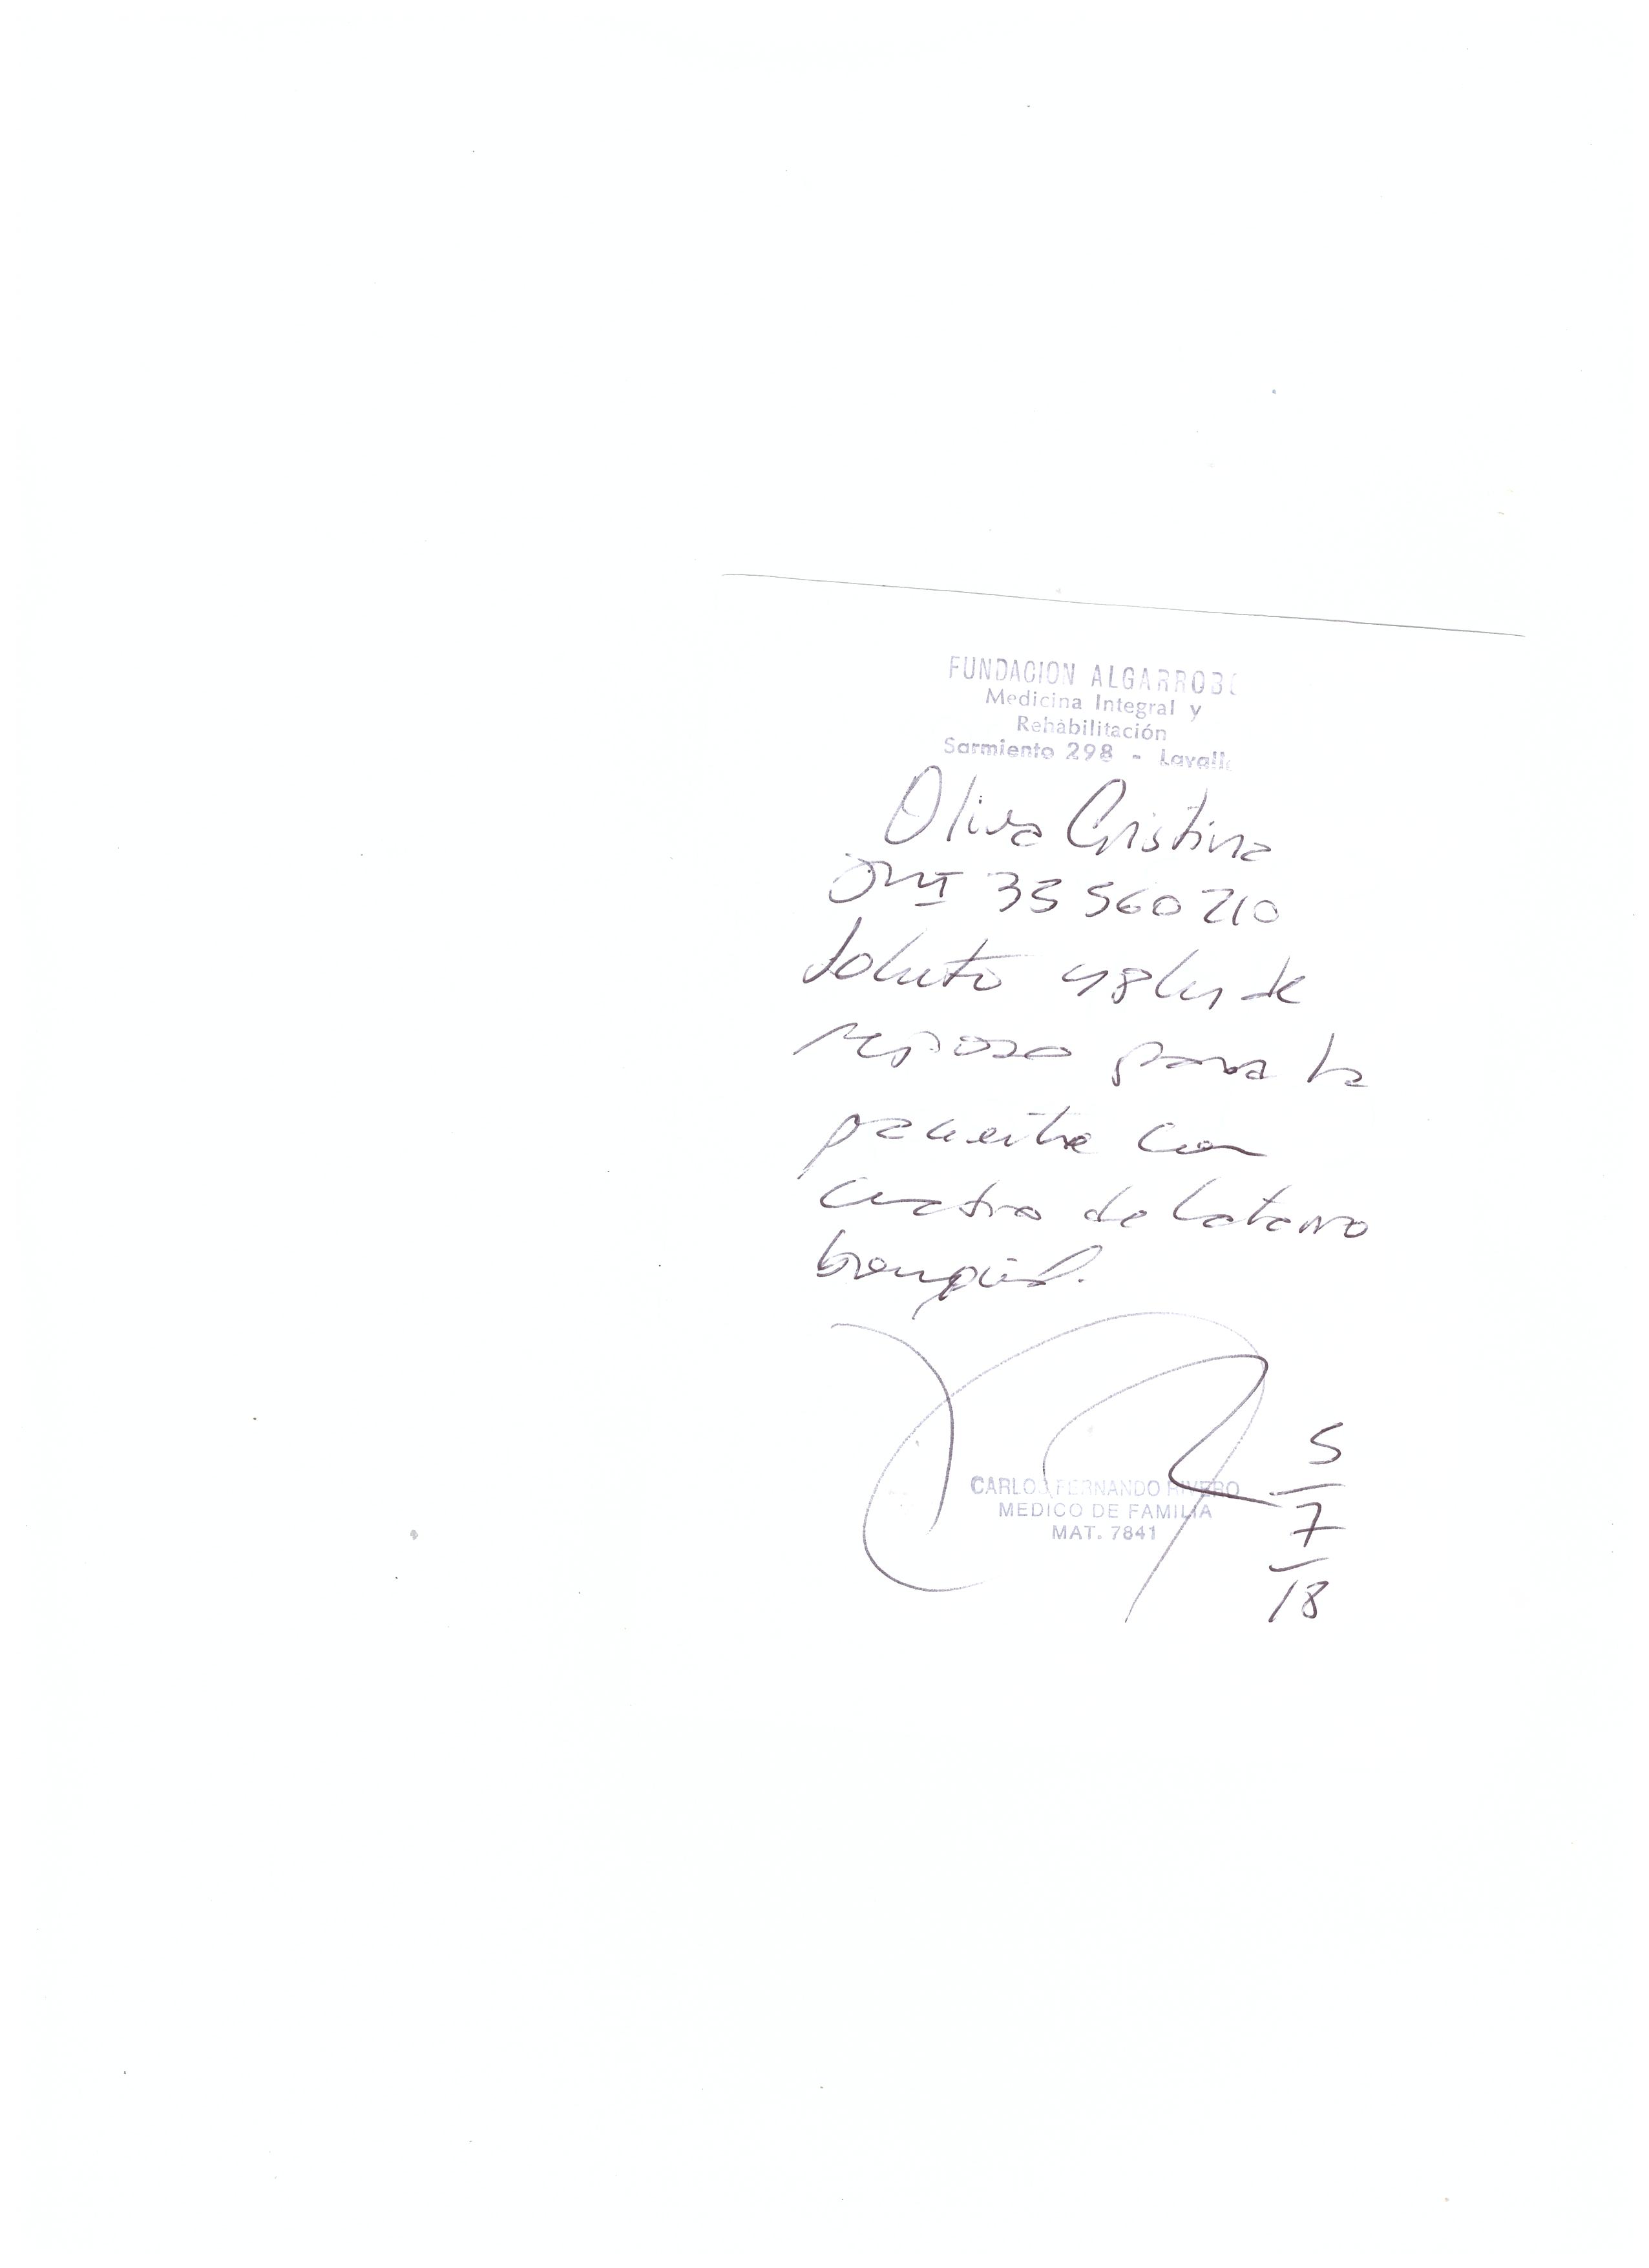 FUNDACION ALGARROBO
Medicina Integral y
Rehabilitación
Sarmiento 298 - Lavalle
Oliva Cristina
DNI 33 560 210
Solicito 48 hs de
reposo para la
paciente con
cuadro de catarro
bronquial.
CARLOS FERNANDO RIVERO
MEDICO DE FAMILIA
MAT. 7841
5
7
18